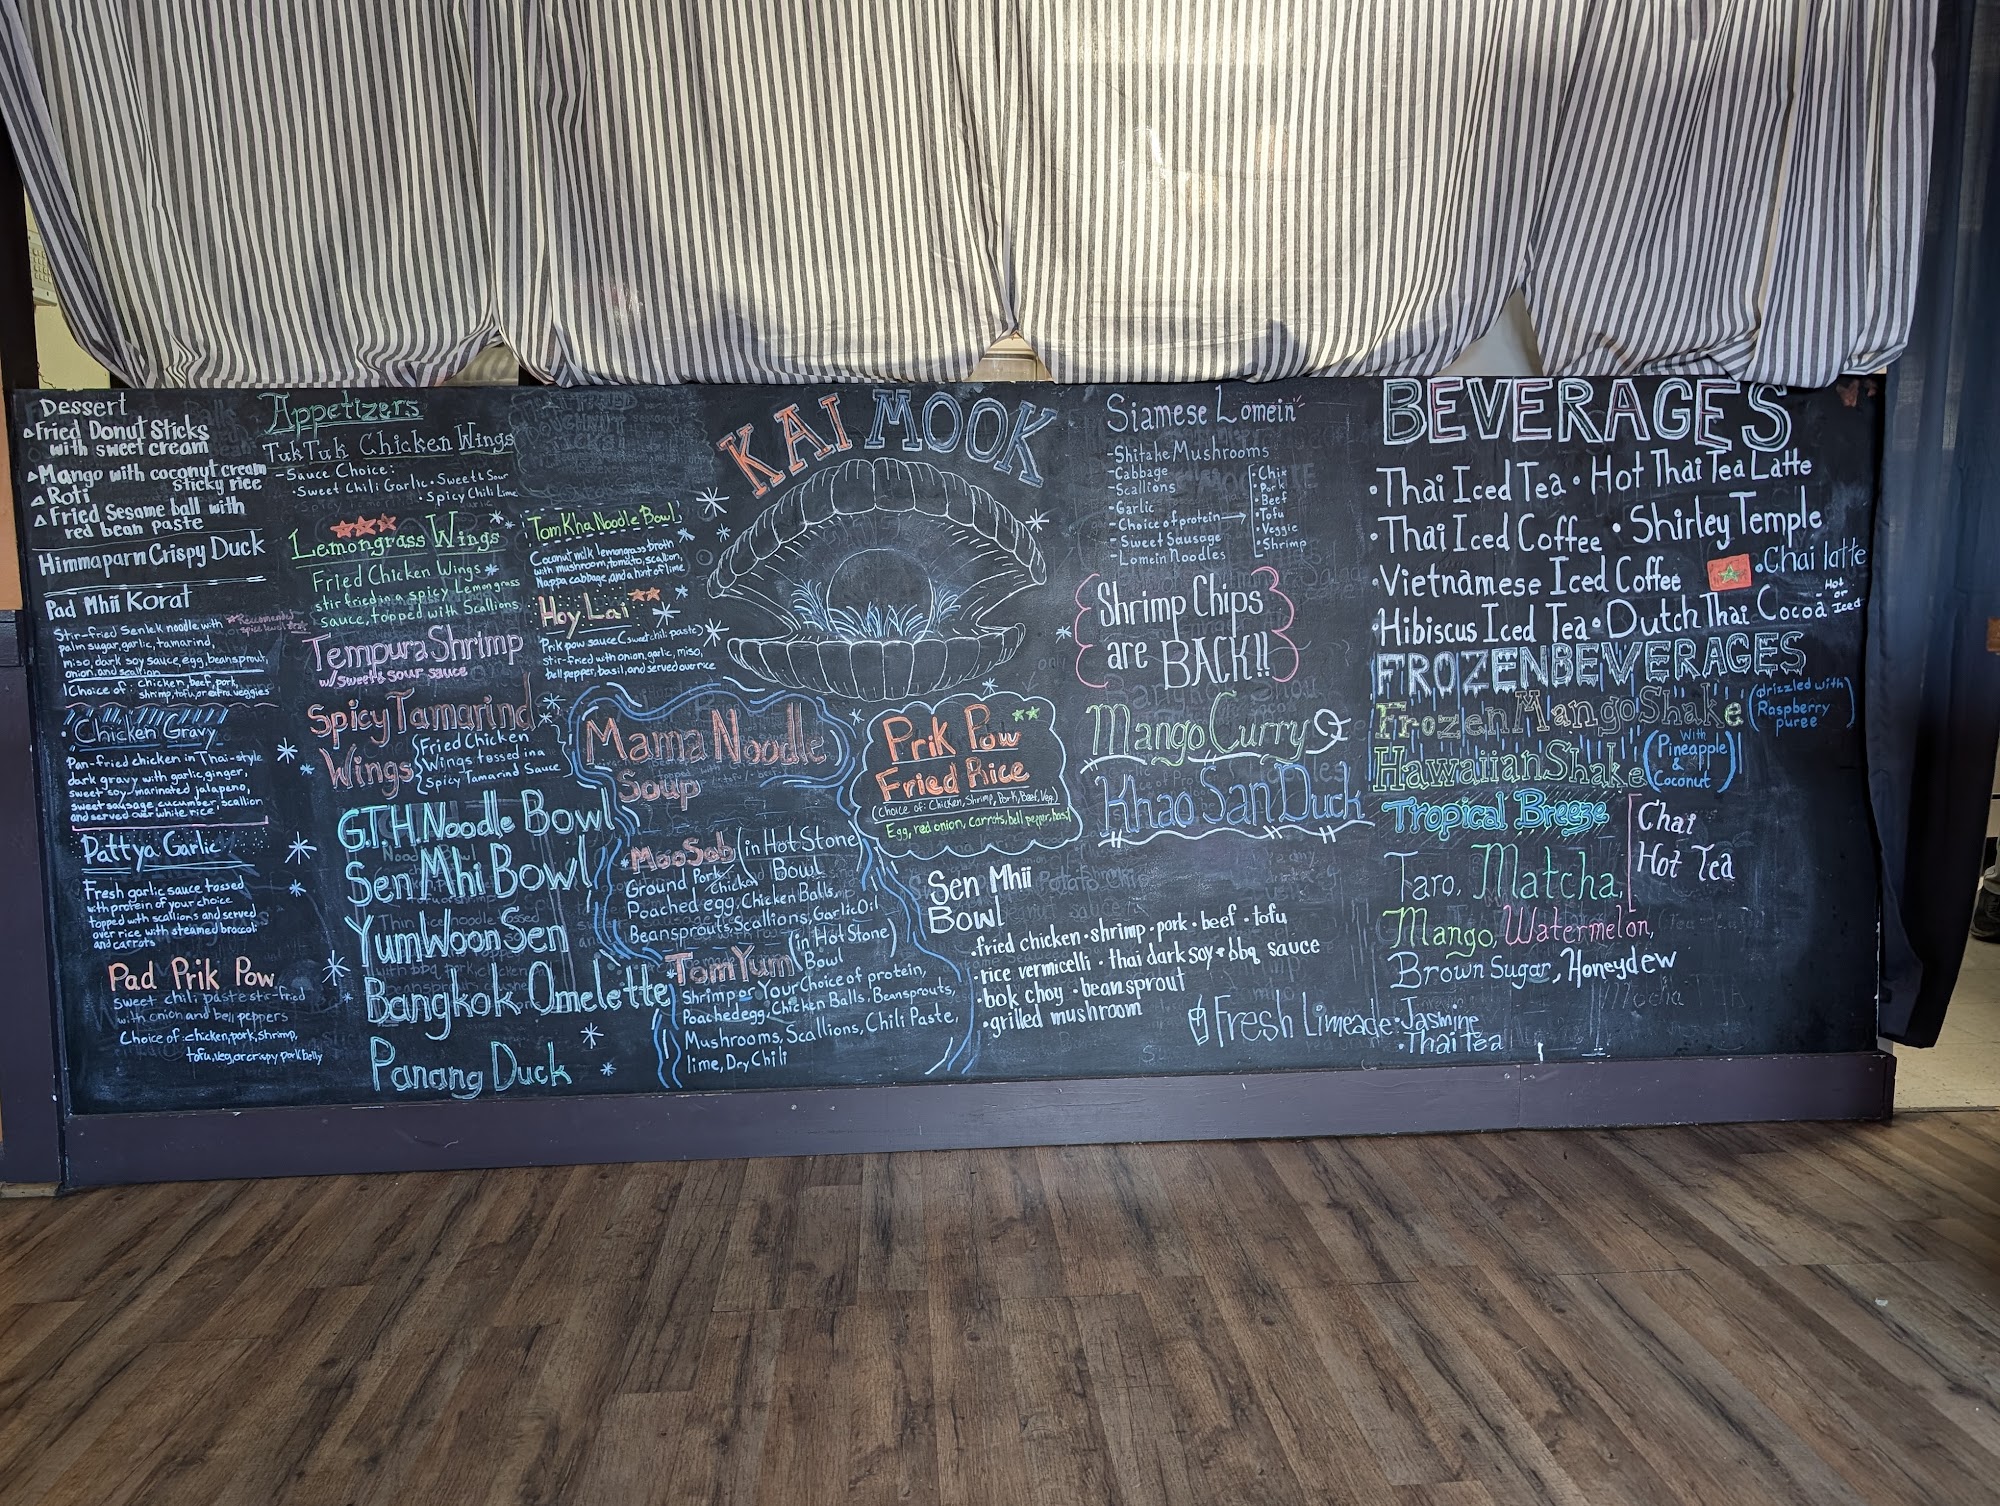 Dessert
Fried Donut Sticks
with sweet cream
Mango with coconut cream
sticky rice
Roti
Fried Sesame ball with
red bean paste
Himmaparn Crispy Duck
Pad Mhii Korat
Stir-fried Senlek noodle with
palm sugar, garlic, tamarind,
miso, dark soy sauce, egg, beansprout,
onion, and scallion
Choice of: chicken, beef, pork,
shrimp, tofu, or extra veggies
Chicken Gravy
Pan-fried chicken in Thai-style
dark gravy with garlic, ginger,
sweet soy-marinated jalapeno,
sweet sausage cucumber, scallion
and served over white rice
Pattya Garlic
Fresh garlic sauce tossed
with protein of your choice
topped with scallions and served
over rice with steamed broccoli
and carrots
Pad Prik Pow
sweet chili paste stir-fried
with onion and bell peppers
Choice of: chicken, pork, shrimp,
tofu, veg, or crispy pork belly
Appetizers
TukTuk Chicken Wings
-Sauce Choice:
•Sweet Chili Garlic •Sweet & Sour
•Spicy Chili Lime
Lemongrass Wings
Fried Chicken Wings
stir fried in a spicy Lemongrass
sauce, topped with Scallions
Tempura Shrimp
w/sweet & sour sauce
Spicy Tamarind
Wings
Fried Chicken
Wings tossed in a
Spicy Tamarind Sauce
G.T.H. Noodle Bowl
Sen Mhi Bowl
YumWoonSen
Bangkok Omelette
Panang Duck
Tom Kha Noodle Bowl
Coconut milk lemongrass broth
with mushroom, tomato, scallion,
Nappa cabbage, and a hint of lime
Hoy Lai
Prik pow sauce (sweet chili paste)
stir-fried with onion, garlic, miso,
bell pepper, basil, and served over rice
Mama Noodle
Soup
MooSob (in Hot Stone
Bowl
Ground Pork, chicken
Poached egg, Chicken Balls,
Beansprouts, Scallions, Garlic Oil
TomYum (in Hot Stone
Bowl)
Shrimp or Your Choice of protein,
Poached egg, Chicken Balls, Beansprouts,
Mushrooms, Scallions, Chili Paste,
lime, Dry Chili
KAI MOOK
Prik Pow
Fried Rice
(Choice of: Chicken, Shrimp, Pork, Beef, Veg)
Egg, red onion, carrots, bell pepper, basil
Sen Mhii
Bowl
•fried chicken •shrimp •pork •beef •tofu
•rice vermicelli •thai dark soy & bbq sauce
•bok choy •beansprout
•grilled mushroom
Siamese Lomein
-Shitake Mushrooms
-Cabbage
-Scallions
-Garlic
-Choice of protein→
-Sweet Sausage
-Lomein Noodles
•Chix
•Pork
•Beef
•Tofu
•Veggie
•Shrimp
Shrimp Chips
are BACK!!
Mango Curry
Khao San Duck
Fresh Limeade
BEVERAGES
•Thai Iced Tea •Hot Thai Tea Latte
•Thai Iced Coffee •Shirley Temple
•Vietnamese Iced Coffee •Chai latte
•Hibiscus Iced Tea •Dutch Thai Cocoa Hot or Iced
FROZEN BEVERAGES
Frozen Mango Shake (drizzled with
Raspberry
puree)
Hawaiian Shake (With
Pineapple
&
Coconut)
Tropical Breeze
Chai
Hot Tea
Taro, Matcha,
Mango, Watermelon,
Brown Sugar, Honeydew
•Jasmine
•Thai Tea